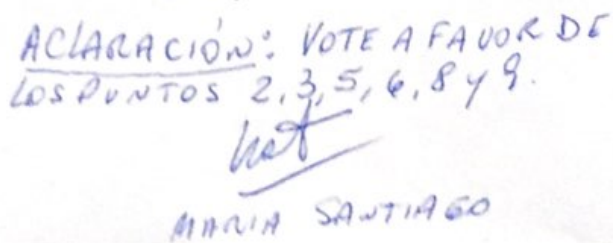 ACLARACIÓN: VOTE A FAVOR DE
LOS PUNTOS 2, 3, 5, 6, 8 y 9.
MARIA SANTIAGO